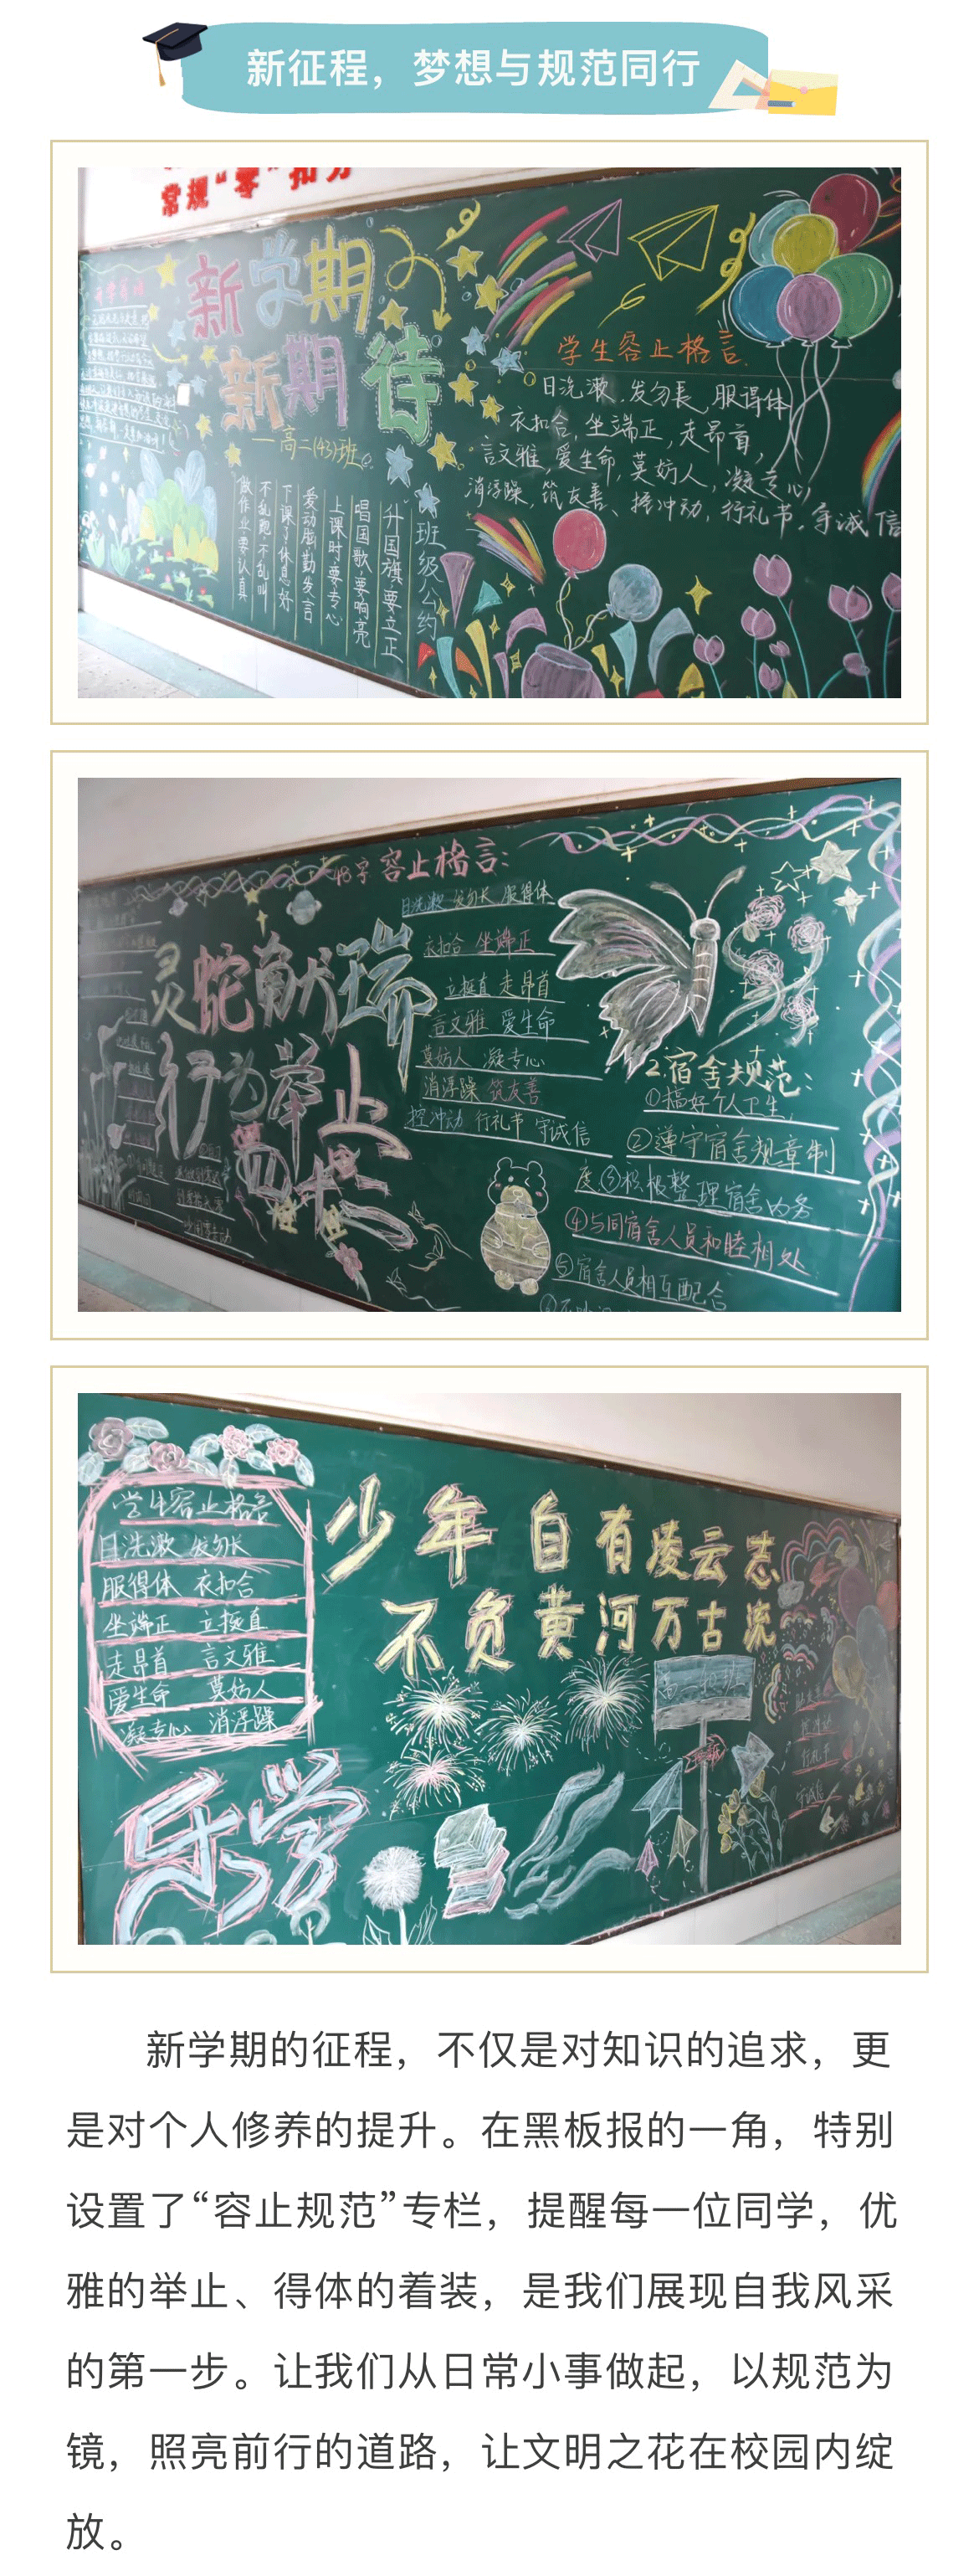 新征程，梦想与规范同行
常规“零”扣分
新学期
新期待
高二(43)班
学生容止格言
日洗漱、发勿长、服得体
衣扣合,坐端正,走昂首,
言文雅,爱生命,莫妨人,凝专心,
消浮躁、筑友善、控冲动,行礼节,守诚信
班级公约
升国旗要立正
唱国歌要响亮
上课时要专心
爱动脑勤发言
下课了休息好
不乱跑不乱叫
做作业要认真
48字容止格言:
日洗漱 发勿长 服得体
衣扣合 坐端正
立挺直 走昂首
言文雅 爱生命
莫妨人 凝专心
消浮躁 筑友善
控冲动 行礼节 守诚信
灵蛇献瑞
行为举止
2.宿舍规范:
①搞好个人卫生
②遵守宿舍规章制
度③积极整理宿舍内务
④与同宿舍人员和睦相处
⑤宿舍人员相互配合
学生容止格言
日洗漱 发勿长
服得体 衣扣合
坐端正 立挺直
走昂首 言文雅
爱生命 莫妨人
凝专心 消浮躁
少年自有凌云志
不负黄河万古流
乐学
控冲动
行礼节
守诚信
新学期的征程，不仅是对知识的追求，更
是对个人修养的提升。在黑板报的一角，特别
设置了“容止规范”专栏，提醒每一位同学，优
雅的举止、得体的着装，是我们展现自我风采
的第一步。让我们从日常小事做起，以规范为
镜，照亮前行的道路，让文明之花在校园内绽
放。